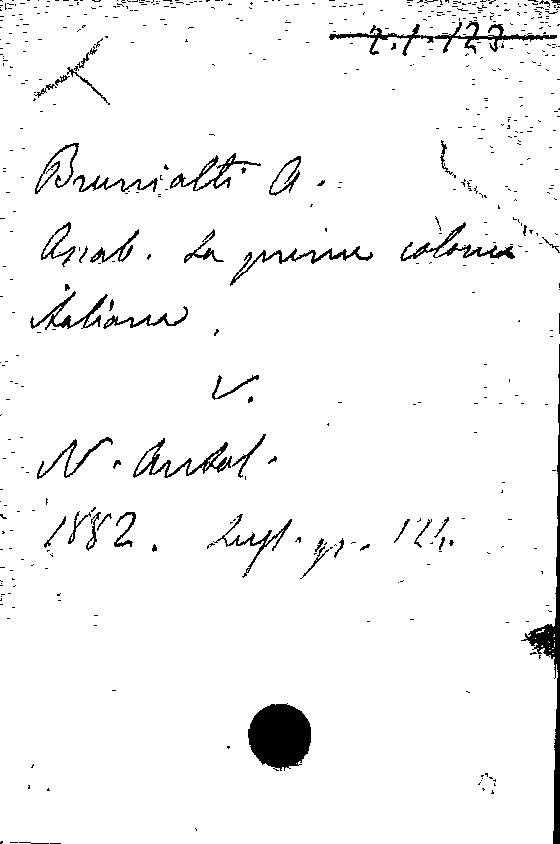 Brunialti A.
Assab. La prima colonia
italiana.
V.
N. Antol.
1882. Lugl. 124.